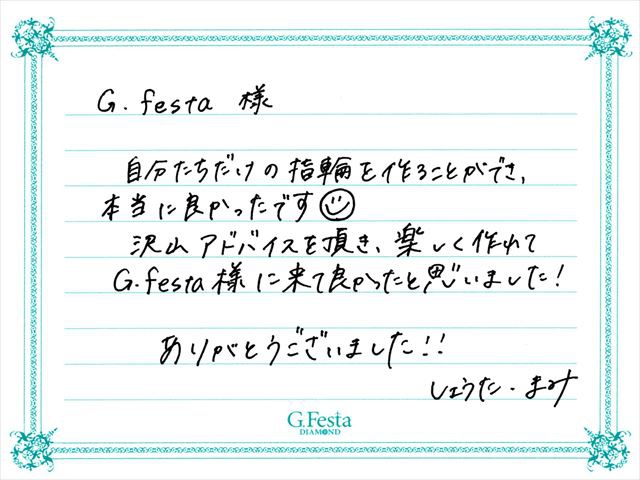 G.festa 様
自分たちだけの指輪を作ることができ、
本当に良かったです
沢山アドバイスを頂き、楽しく作れて
G.festa様に来て良かったと思いました!
ありがとうございました!!
しょうた・まみ
G.Festa
DIAMOND